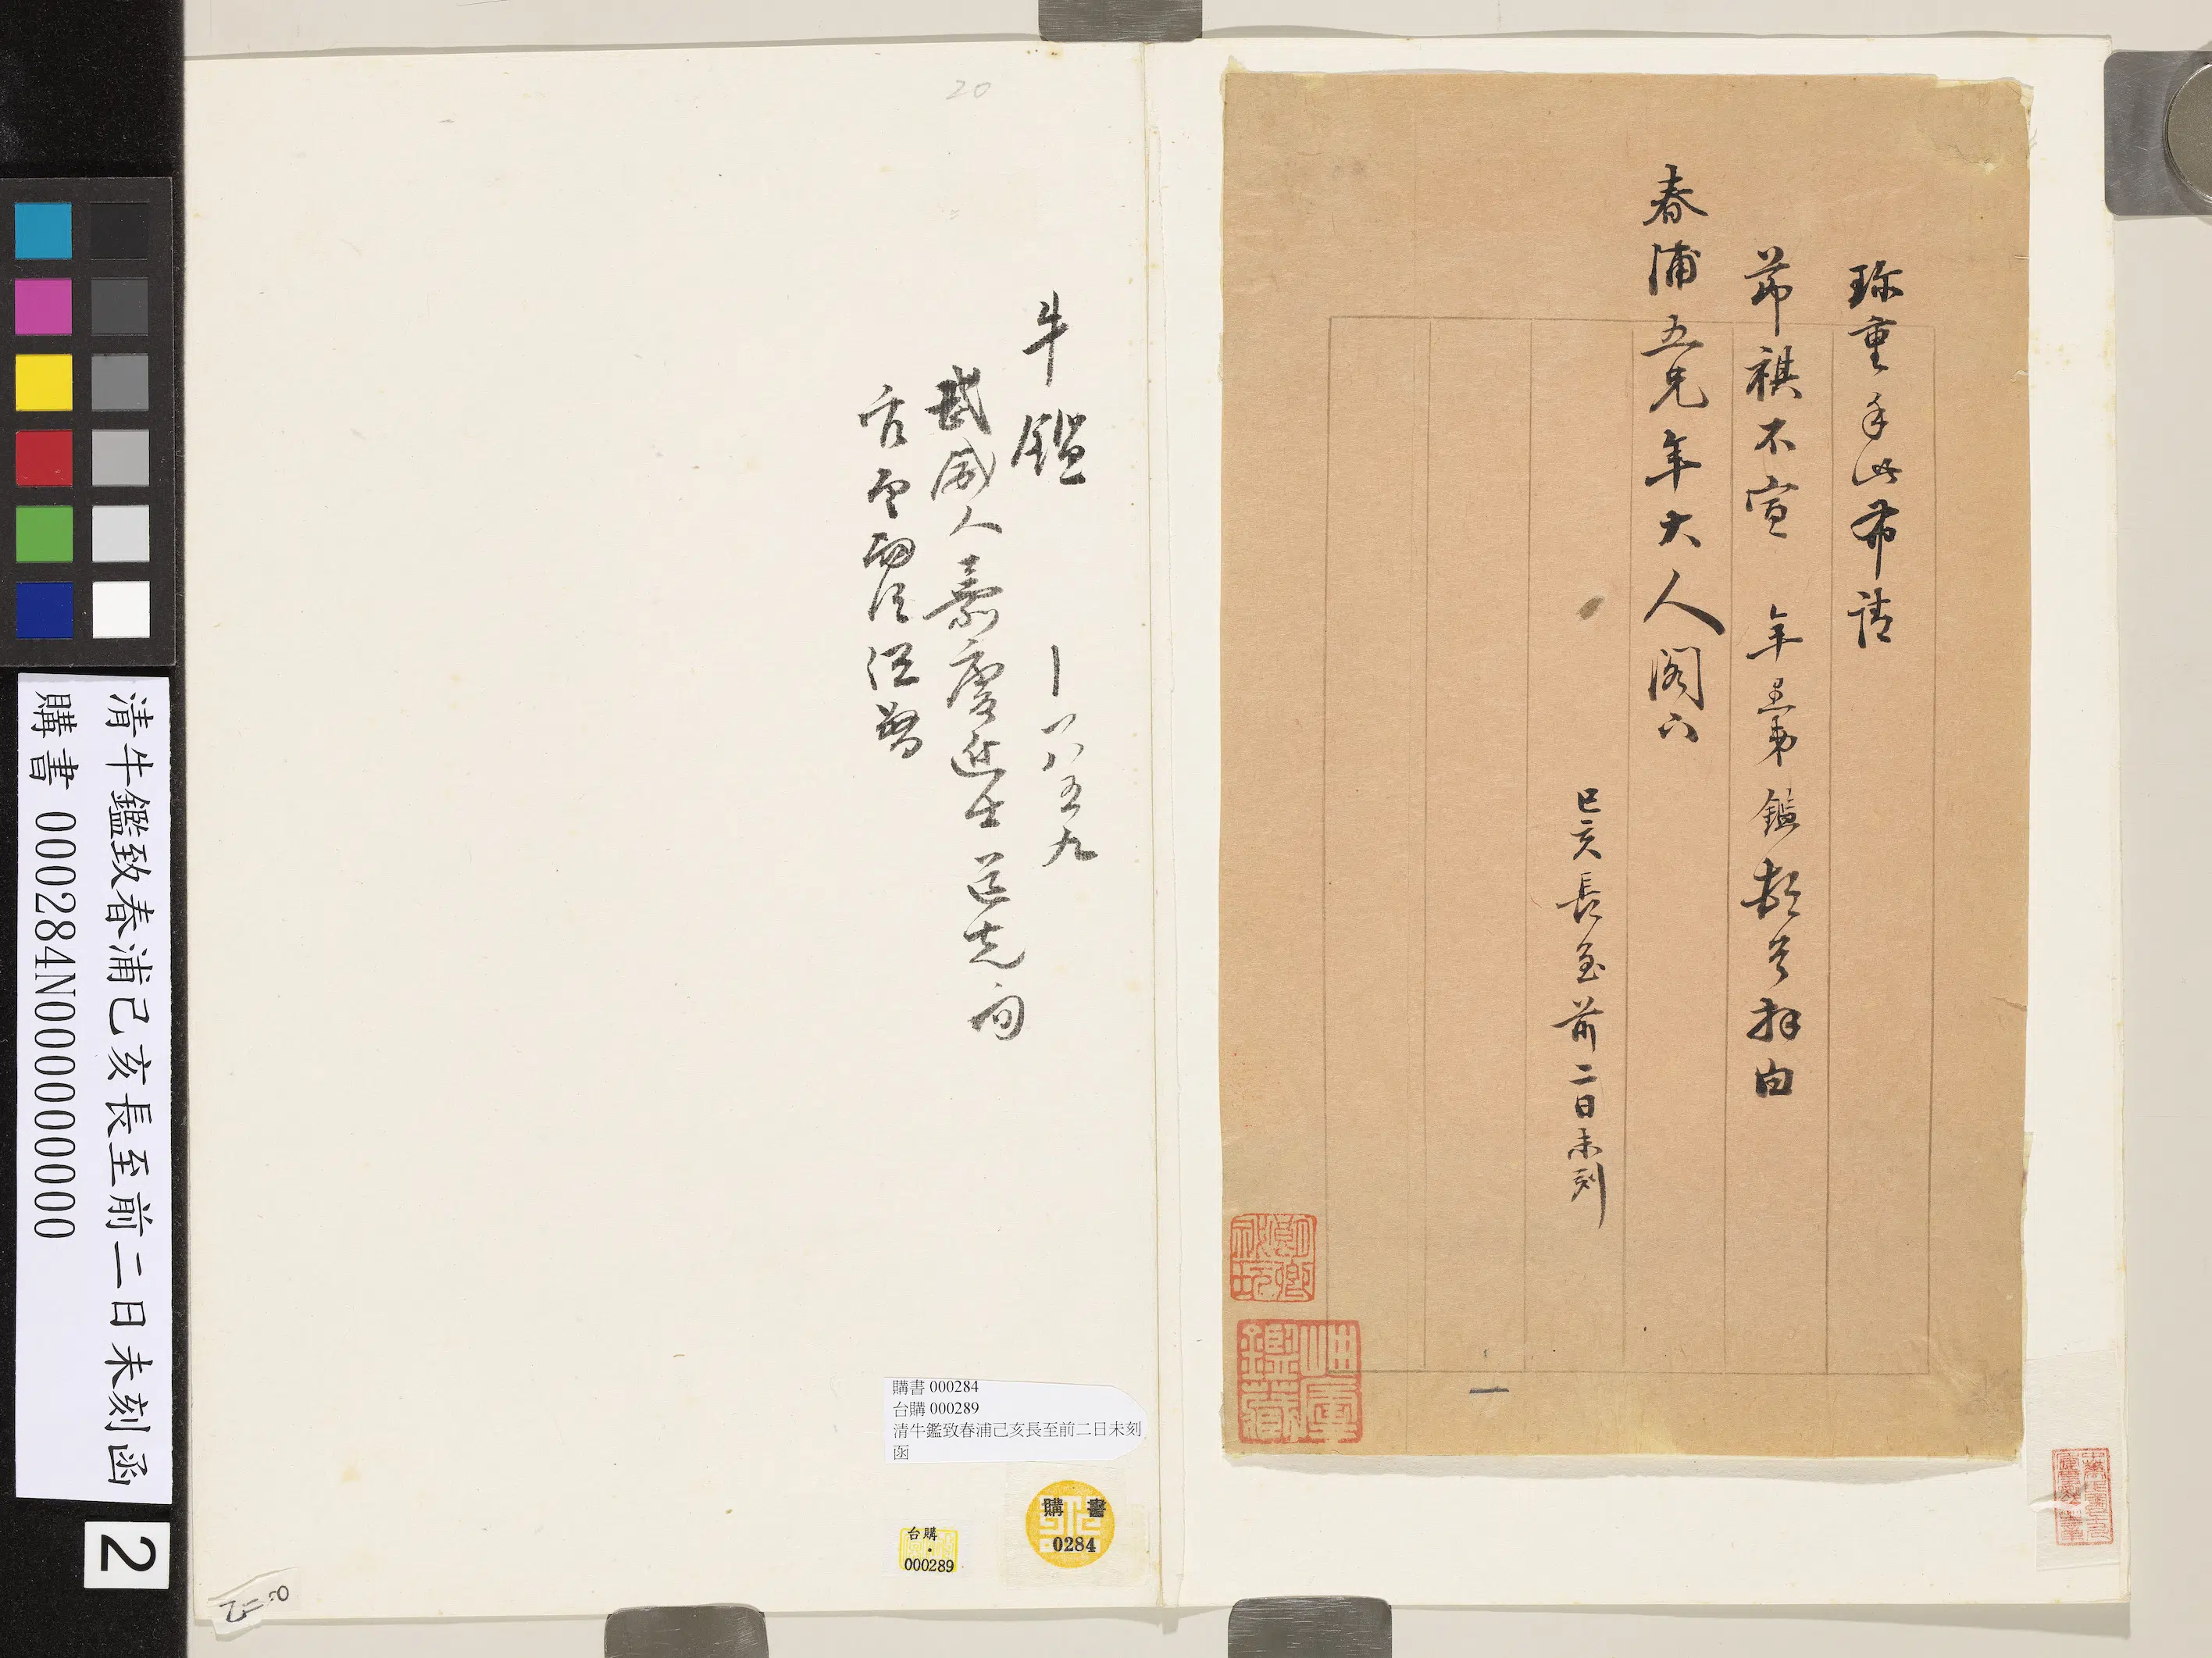 珎重手此布請
茀祺不宣 年愚弟鑑頓首拜白
春浦五兄年大人閣下
己亥長至前二日未刻
牛鑑 —一八五九
武威人嘉慶進士道光間
官至兩江総督
20
購書 000284
台購 000289
清牛鑑致春浦己亥長至前二日未刻
函
購書
0284
台購
000289
清牛鑑致春浦己亥長至前二日未刻函
購書 000284N000000000
2